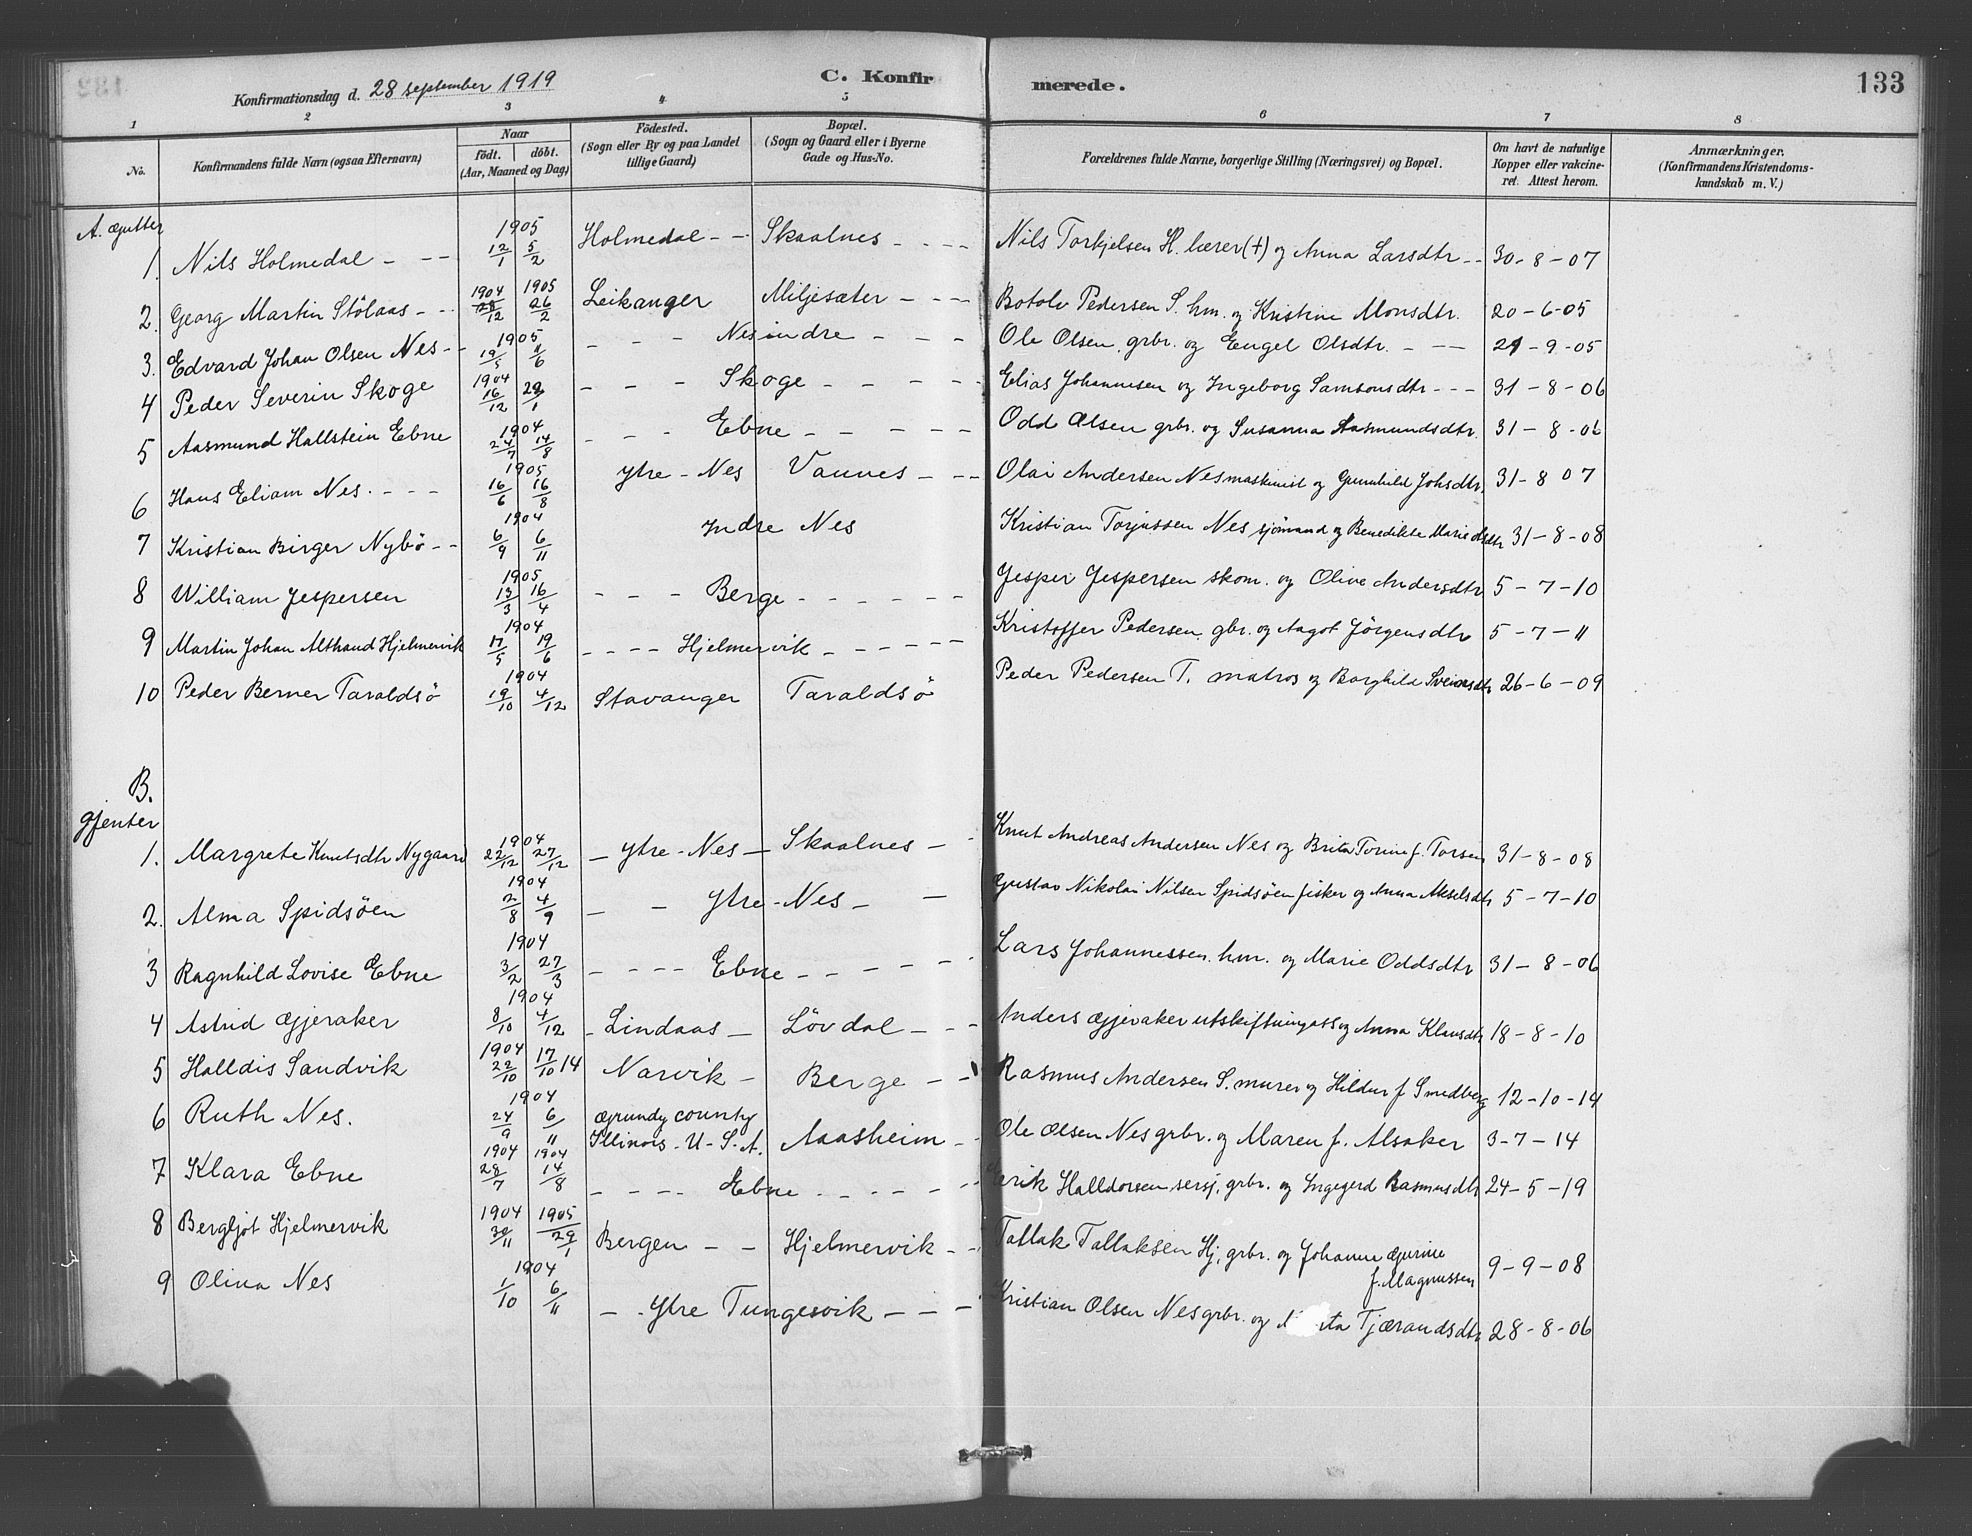 Konfirmationsdag d. 28 september 1919 C. Konfirmerede. 133
1 2 3 4 5 6 7 8
No. Konfirmandens fulde Navn (ogsaa Efternavn) Naar födt. döbt. (Aar, Maaned og Dag) Födested. (Sogn eller By og paa Landet tillige Gaard) Bopæl. (Sogn og Gaard eller i Byerne Gade og Hus-No. Forældrenes fulde Navne, borgerlige Stilling (Næringsvei) og Bopæl. Om havt de naturlige Kopper eller vakcineret. Attest herom. Anmærkninger. (Konfirmandens Kristendomskundskab m. V.)
A. Gutter
1. Nils Holmedal - -- 1905 12/1 5/2 Holmedal -- Skaalnes - - - - Nils Torkjelsen H. lærer (+) og Anna Larsdtr -- 30-8-07
2. Georg Martin Stölaas - - 1904 28/12 1905 26/2 Leikanger Miljesæter - - - Botolv Pedersen S. hm. og Kristine Monsdtr. 20-6-05
3. Edvard Johan Olsen Nes - - 1905 19/5 11/6 - - - Nes indre - - - Ole Olsen, grbr. og Engel Olsdtr. - -- 21-9-05
4 Peder Severin Skoge 1904 16/12 22/1 - - - Skoge - - - - - Elias Johannesen og Ingeborg Samsonsdtr - - - 31-8-06
5 Aasmund Hallstein Ebne 1904 24/7 14/8 - - - Ebne - - - - - Odd Olsen grbr. og Susanna Aasmundsdtr. 31-8-06
6 Hans Eliam Nes. - - - 1905 16/6 16/8 ytre - Nes Vannes - - - Olai Andersen Nes maskinist og Gunnhild Johsdtr. 31-8 07
7 Kristian Birger Nybö - - 1904 6/9 6/11 Indre Nes Kristian Torjussen Nes sjömand og Benedikte Marie Olsdtr 31-8-08
8 William Jespersen 1905 13/3 16/4 - - - Berge - - - - - - Jesper Jespersen skom. og Olive Andersdtr 5-7-10
9 Martin Johan Althand Hjelmervik 1904 17/5 19/6 - - - - Hjelmervik - - - - - Kristoffer Pedersen, gbr. og Aagot Jörgensdtr 5-7-11
10 Peder Berner Taraldsö 1904 19/10 4/12 Stavanger Taraldsö Peder Pedersen T. matros og Borghild Sveinsdtr 26-6-09
B.
gjenter
1. Margrete Knutsdtr Nygaard 1904 22/12 27/12 - ytre - Nes - Skaalnes - - Knut Andreas Andersen Nes og Brita Torine f. Torsen 31-8-08
2. Alma Spidsöen 1904 2/8 4/9 - - Ytre - Nes - - Gustav Nikolai Nilsen Spidsöen fisker og Anna Akselsdtr 5-7-10
3 Ragnhild Lovise Ebne 1904 3/2 27/3 - - - - Ebne - - - - - Lars Johannessen. hm. og Marie Oddsdtr 31-8-06
4 Astrid Gjeraker 1904 8/10 4/12 - Lindaas - Lövdal - - - Anders Gjeraker utskiftningass og Anna Klausdtr 18-8-10
5 Halldis Sandvik 1904 22/10 17/10 14 Narvik - Berge - - Rasmus Andersen S. murer og Hildur f Smedberg 12-10-14
6 Ruth Nes. 1904 24/9 6/11 Grundy county Illinois. U-S.A. Aaasheim - Ole Olsen Nes grbr. og Maren f. Alsaker 3-7-14
7 Klara Ebne 1904 28/7 1904 14/8 - - - - Ebne - - - - - - Eirik Halldorsen sersj, grbr. og Ingegerd Rasmusdtr 24-5-19
8 Bergljot Hjelmervik 1904 30/11 1905 29/1 Bergen - - Hjelmervik - - Tallak Tallaksen Hj, grbr. og Johanne Gurine f. Magnussen 9-9-08
9 Olina Nes 1904 1/10 6/11 - - Ytre Tungesvik - - - Kristian Olsen Nes grbr. og Tjærandsdtr 28-8-06